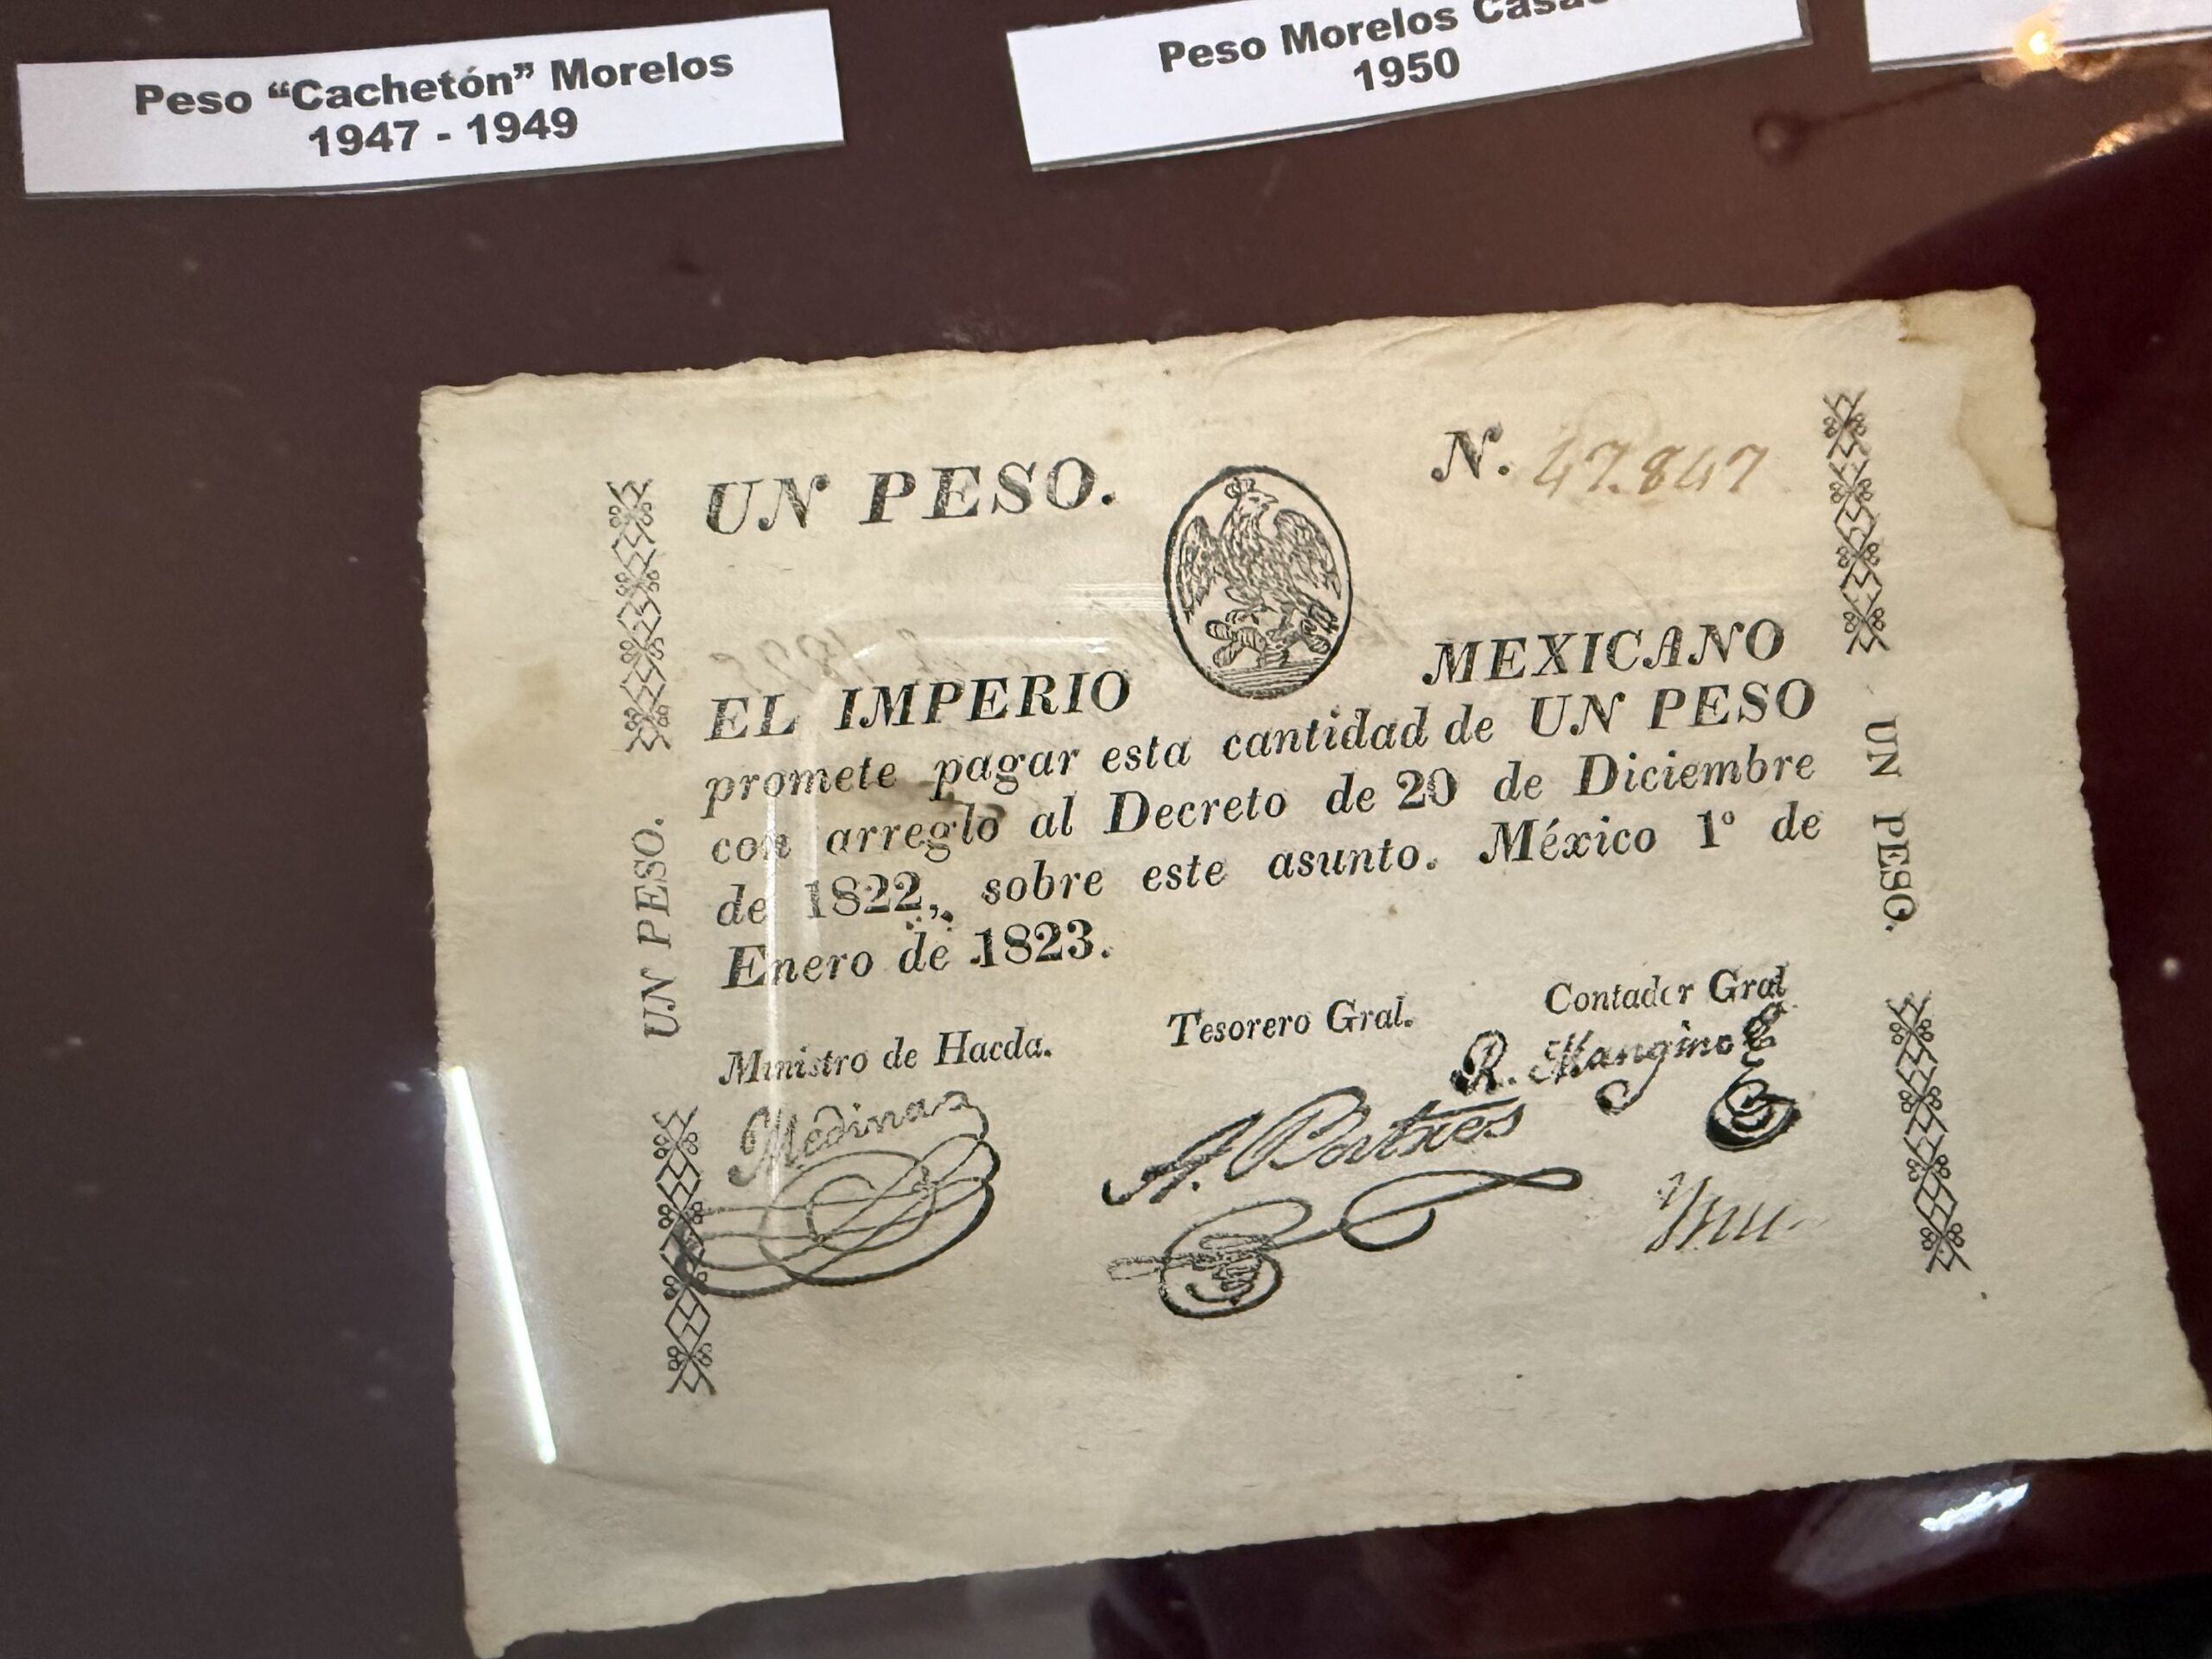 Peso “Cachetón” Morelos
1947 - 1949
Peso Morelos
1950
UN PESO.
N. 47.847
EL IMPERIO MEXICANO
promete pagar esta cantidad de UN PESO
con arreglo al Decreto de 20 de Diciembre
de 1822, sobre este asunto. México 1º de
Enero de 1823.
Ministro de Hacda.
Tesorero Gral.
Contador Gral
Medina
A. Batres
R. Mangino
UN PESO.
UN PESO.